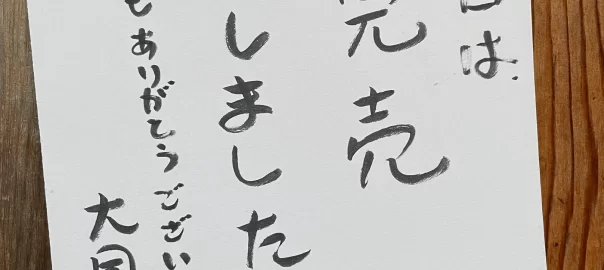 は
完売
しました
もありがとうござい
大